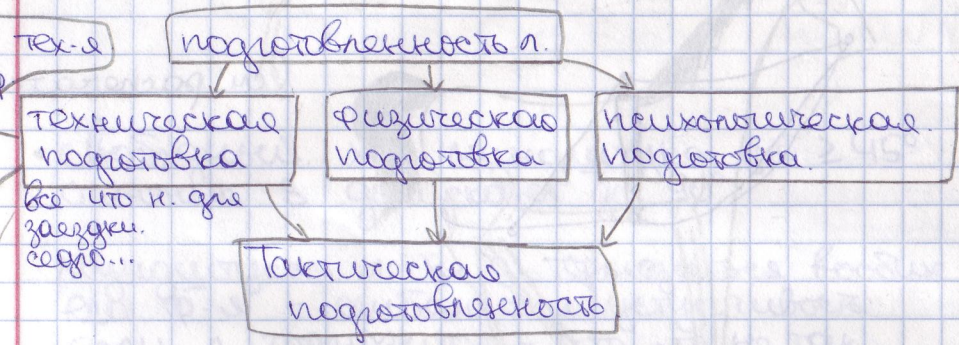 тех-я
подготовленность л.
техническая
подготовка
физическая
подготовка
психологическая.
подготовка.
всё что н. для
заездки.
седло...
Тактическая
подготовленность